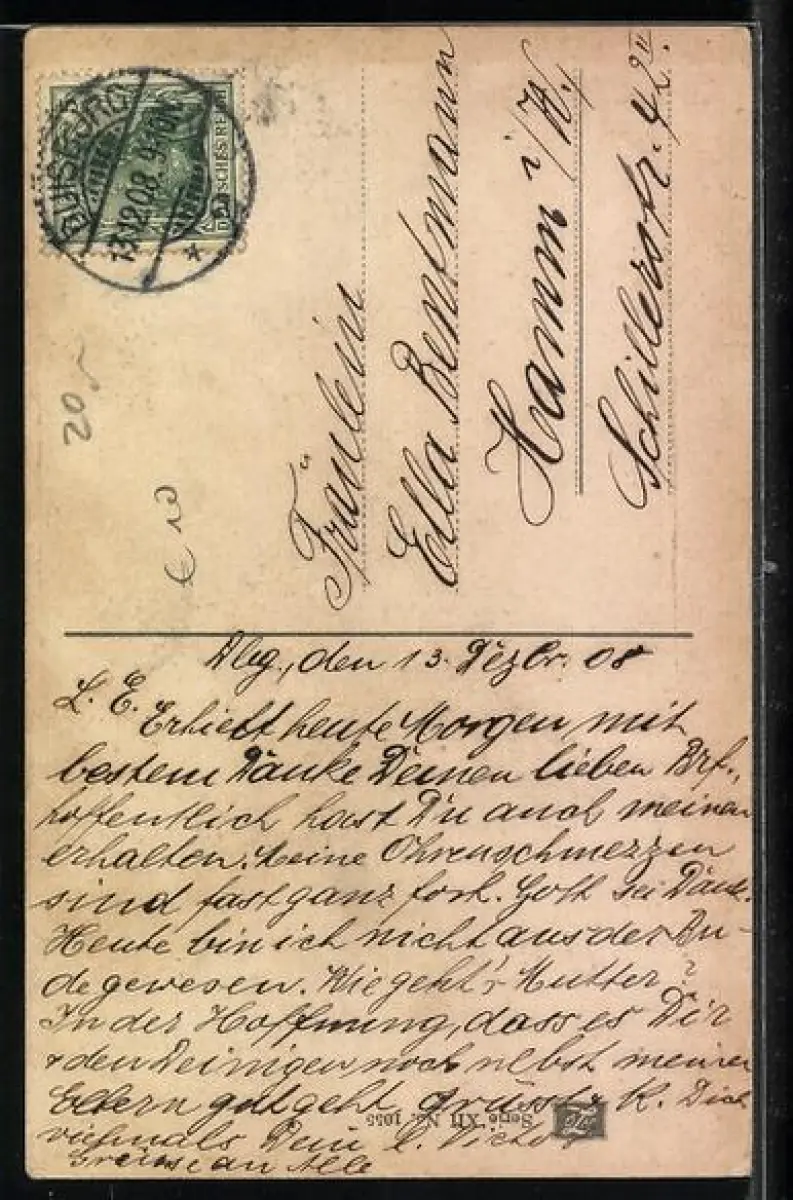 DUISBURG
13.12.08. 9-10N.
DEUTSCHES REICH
20,-
€ 10
Fräulein
Ella Bentmann
Hamm i/W,
Schillerstr. 42 II.
den 13. Dezbr. 08
L. E. Erhielt heute Morgen mit
bestem Danke Deinen lieben Brf.,
hoffentlich hast Du auch meinen
erhalten. Meine Ohrenschmerzen
sind fast ganz fort. Gott sei Dank.
Heute bin ich nicht aus der Bu-
de gewesen. Wie geht's Mutter?
In der Hoffnung, dass es Dir
& den Deinigen noch nebst meinen
Eltern gut geht, grüsst & K. Dich
vielmals Dein l.
Grüsse an Alle
Serie XII No. 1055